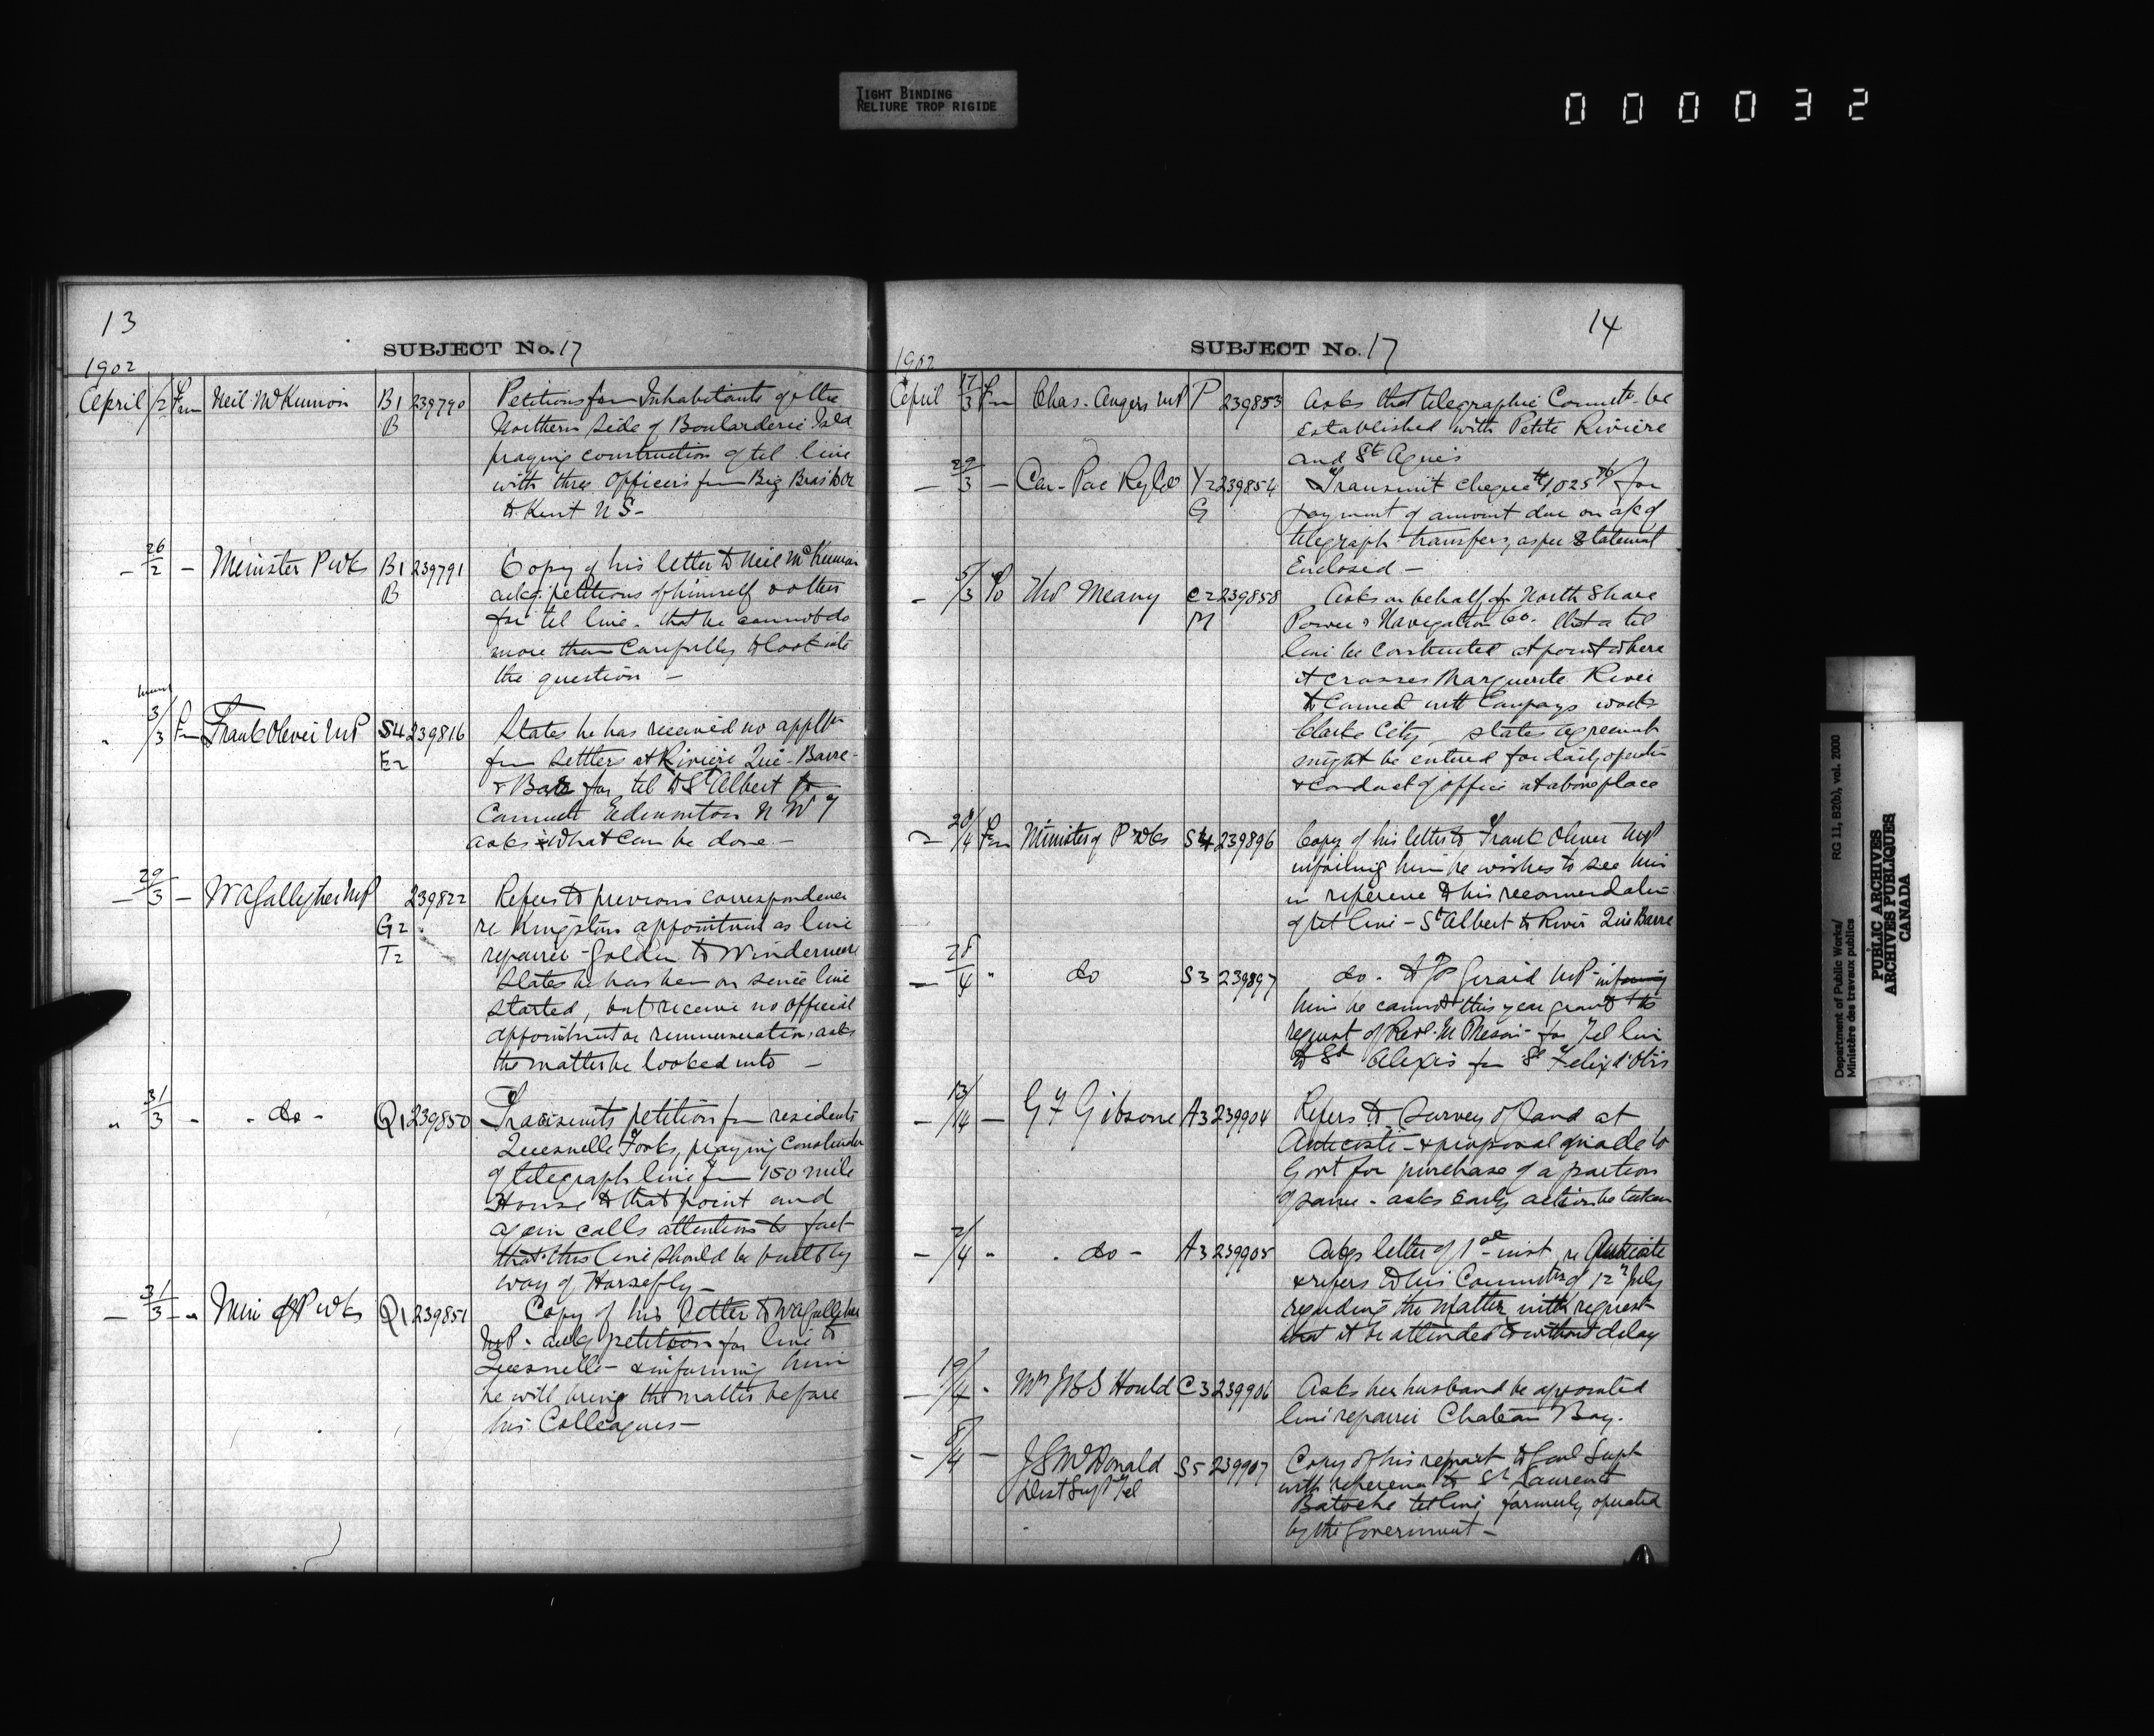 TIGHT BINDING
RELIURE TROP RIGIDE
000032
13
SUBJECT No. 17
1902
April /2 Fm Neil McKinnon B1 239790 Petitions fm Inhabitants of the
B Northern Side of Boularderie Isld
praying construction of tel line
with three Officers fm Big Bras Dor
to Kent NS -
- 26/2 - Minister P Wks B1 239791 Copy of his letter to Neil McKinnon
B ackg petitions of himself & others
for tel line - that he cannot do
more than Carefully to look into
the question -
" 3/3 Fm Frank Oliver MP S4 239816 States he has received no applt
E2 fm Settlers at Riviere Qui-Barre
for tel to St Albert to
Connect Edmonton N W T
asks what Can be done -
- 29/3 - W A Galliher MP 239822 Refers to previous correspondence
G2 re Kingston appointment as line
T2 repairer - Golden to Windermere
States he has been on since line
started, but receive no official
appointment or remuneration, asks
the matter be looked into -
" 31/3 - - do - Q1 239850 Transmits petition fm residents
Quesnelle Forks, praying Construction
of telegraph line fm 150 mile
House to that point and
again calls attention to fact
that this line should be built by
way of Horsefly -
- 31/3 - " Min of P Wks Q1 239851 Copy of his letter to W A Galliher
MP - ackg petition for line to
Quesnelle - & informing him
he will bring the matter before
his Colleagues -
14
SUBJECT No. 17
1902
April 17/3 Fm Chas. Angers MP P 239853 Asks that telegraphic Connectn be
Established with Petite Riviere
and St Agnes
- 29/3 - Can - Pac Ry Co Y2 239854 Transmit cheque $1,025 for
G payment of amount due on a/c of
telegraph transfers, as per Statement
Enclosed -
- 5/3 Fo Thos Meany C2 239858 Asks on behalf of North Shore
M Power & Navigation Co. that a tel
line be constructed at point where
it crosses Marguerite River
to Connect with Companys works
Clarke City - states agreement
might be entered for daily operatn
& conduct of office at above place
- 28/4 Fm Minister of P Wks S4 239896 Copy of his letter to Frank Oliver MP
informing him he wishes to see him
in reference to his recommendation
of tel line - St Albert to River Qui Barre
- 28/4 " do S3 239897 do - to Jos Girard MP - informing
him he cannot this year grant the
request of Revd. for Tel line
to St Alexis fm St Felix d'Otis
- 13/4 - G F Gibsone A3 239904 Refers to Survey of land at
Anticosti - & proposal made to
Govt for purchase of a portion
of same - asks Early action be taken
- 2/4 " . do - A3 239905 Ackgs letter of 1st inst re Anticosti
& refers to his Commctn of 12th July
regarding the matter with request
that it be attended to without delay
- 19/4 " Mrs J B S Hould C3 239906 Asks her husband be appointed
line repairer Chateau Bay.
- 8/4 - J S McDonald S5 239907 Copy of his report to Genl Supt
Dist Supt Tel with reference to St Laurent
Batoche tel line formerly operated
by the Government -
Department of Public Works/
Ministère des travaux publics
RG 11, B2(b), vol. 2000
PUBLIC ARCHIVES
ARCHIVES PUBLIQUES
CANADA